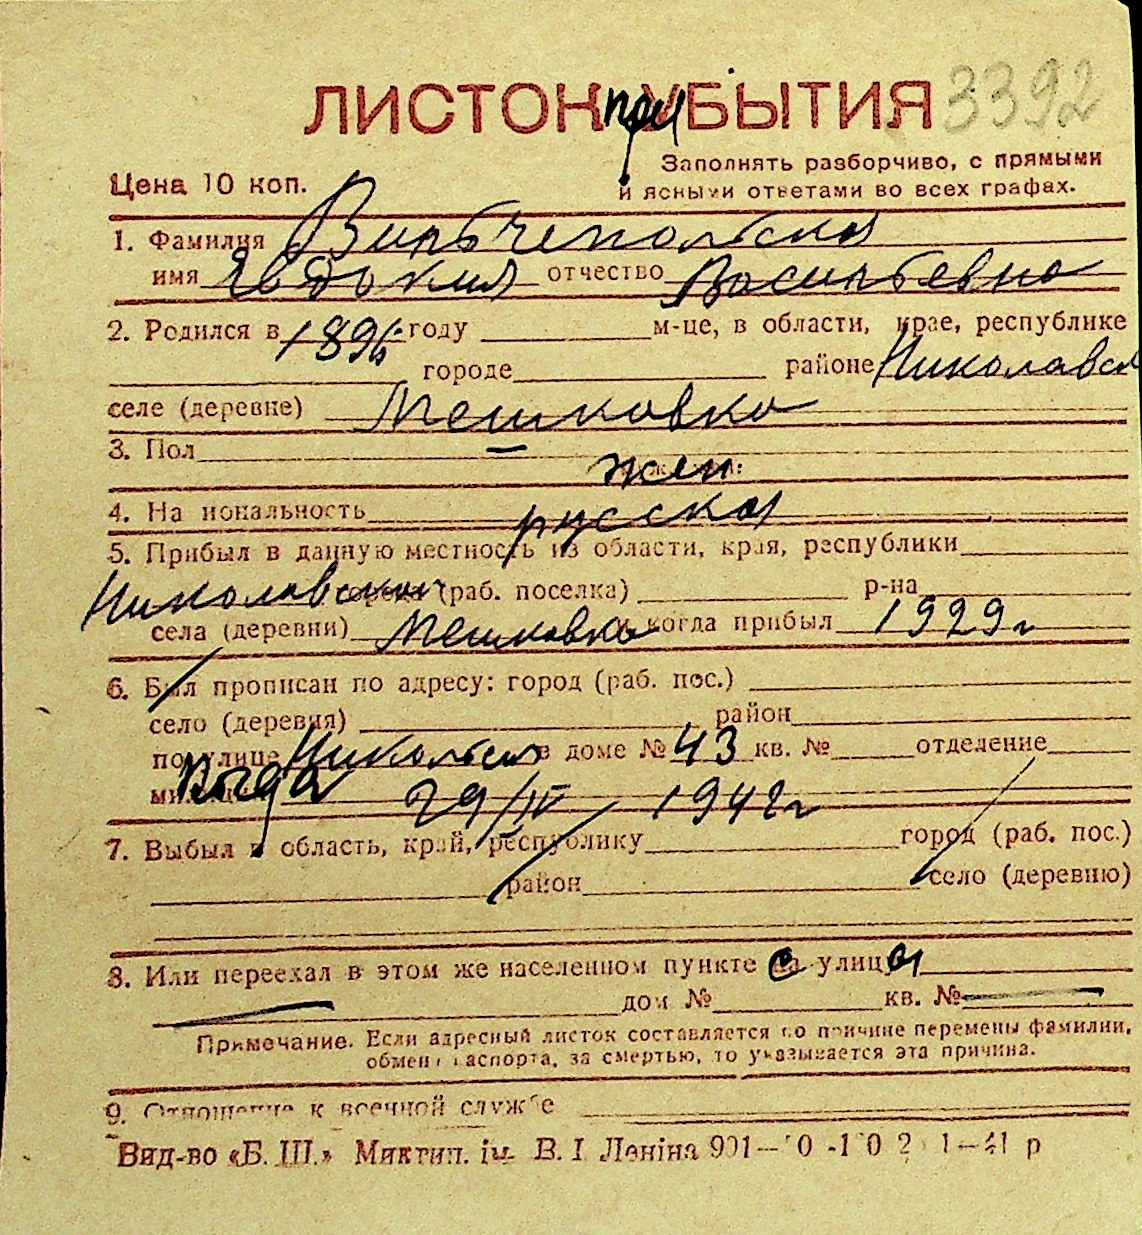 ЛИСТОК ПРИБЫТИЯ 3392
Заполнять разборчиво, с прямыми
Цена 10 коп. и ясными ответами во всех графах.
1. Фамилия Вирбчепольская
имя Явдокия отчество Васильевна
2. Родился в 1896 году м-це, в области, крае, республике
городе районе Николаевск
селе (деревне) Мешковка
3. Пол жен
4. Национальность русская
5. Прибыл в данную местность из области, края, республики
Николаевский города (раб. поселка) р-на
села (деревни) Мешковка и когда прибыл 1929 г
6. Был прописан по адресу: город (раб. пос.)
село (деревня) район
по улице Никольск в доме № 43 кв. № отделение
милиции когда 29/IV 1942 г
7. Выбыл в область, край, республику город (раб. пос.)
район село (деревню)
8. Или переехал в этом же населенном пункте с улицы
дом № кв. №
Примечание. Если адресный листок составляется по причине перемены фамилии,
обмена паспорта, за смертью, то указывается эта причина.
9. Отношение к военной службе
Вид-во «Б. Ш.» Миктип. ім. В. І Леніна